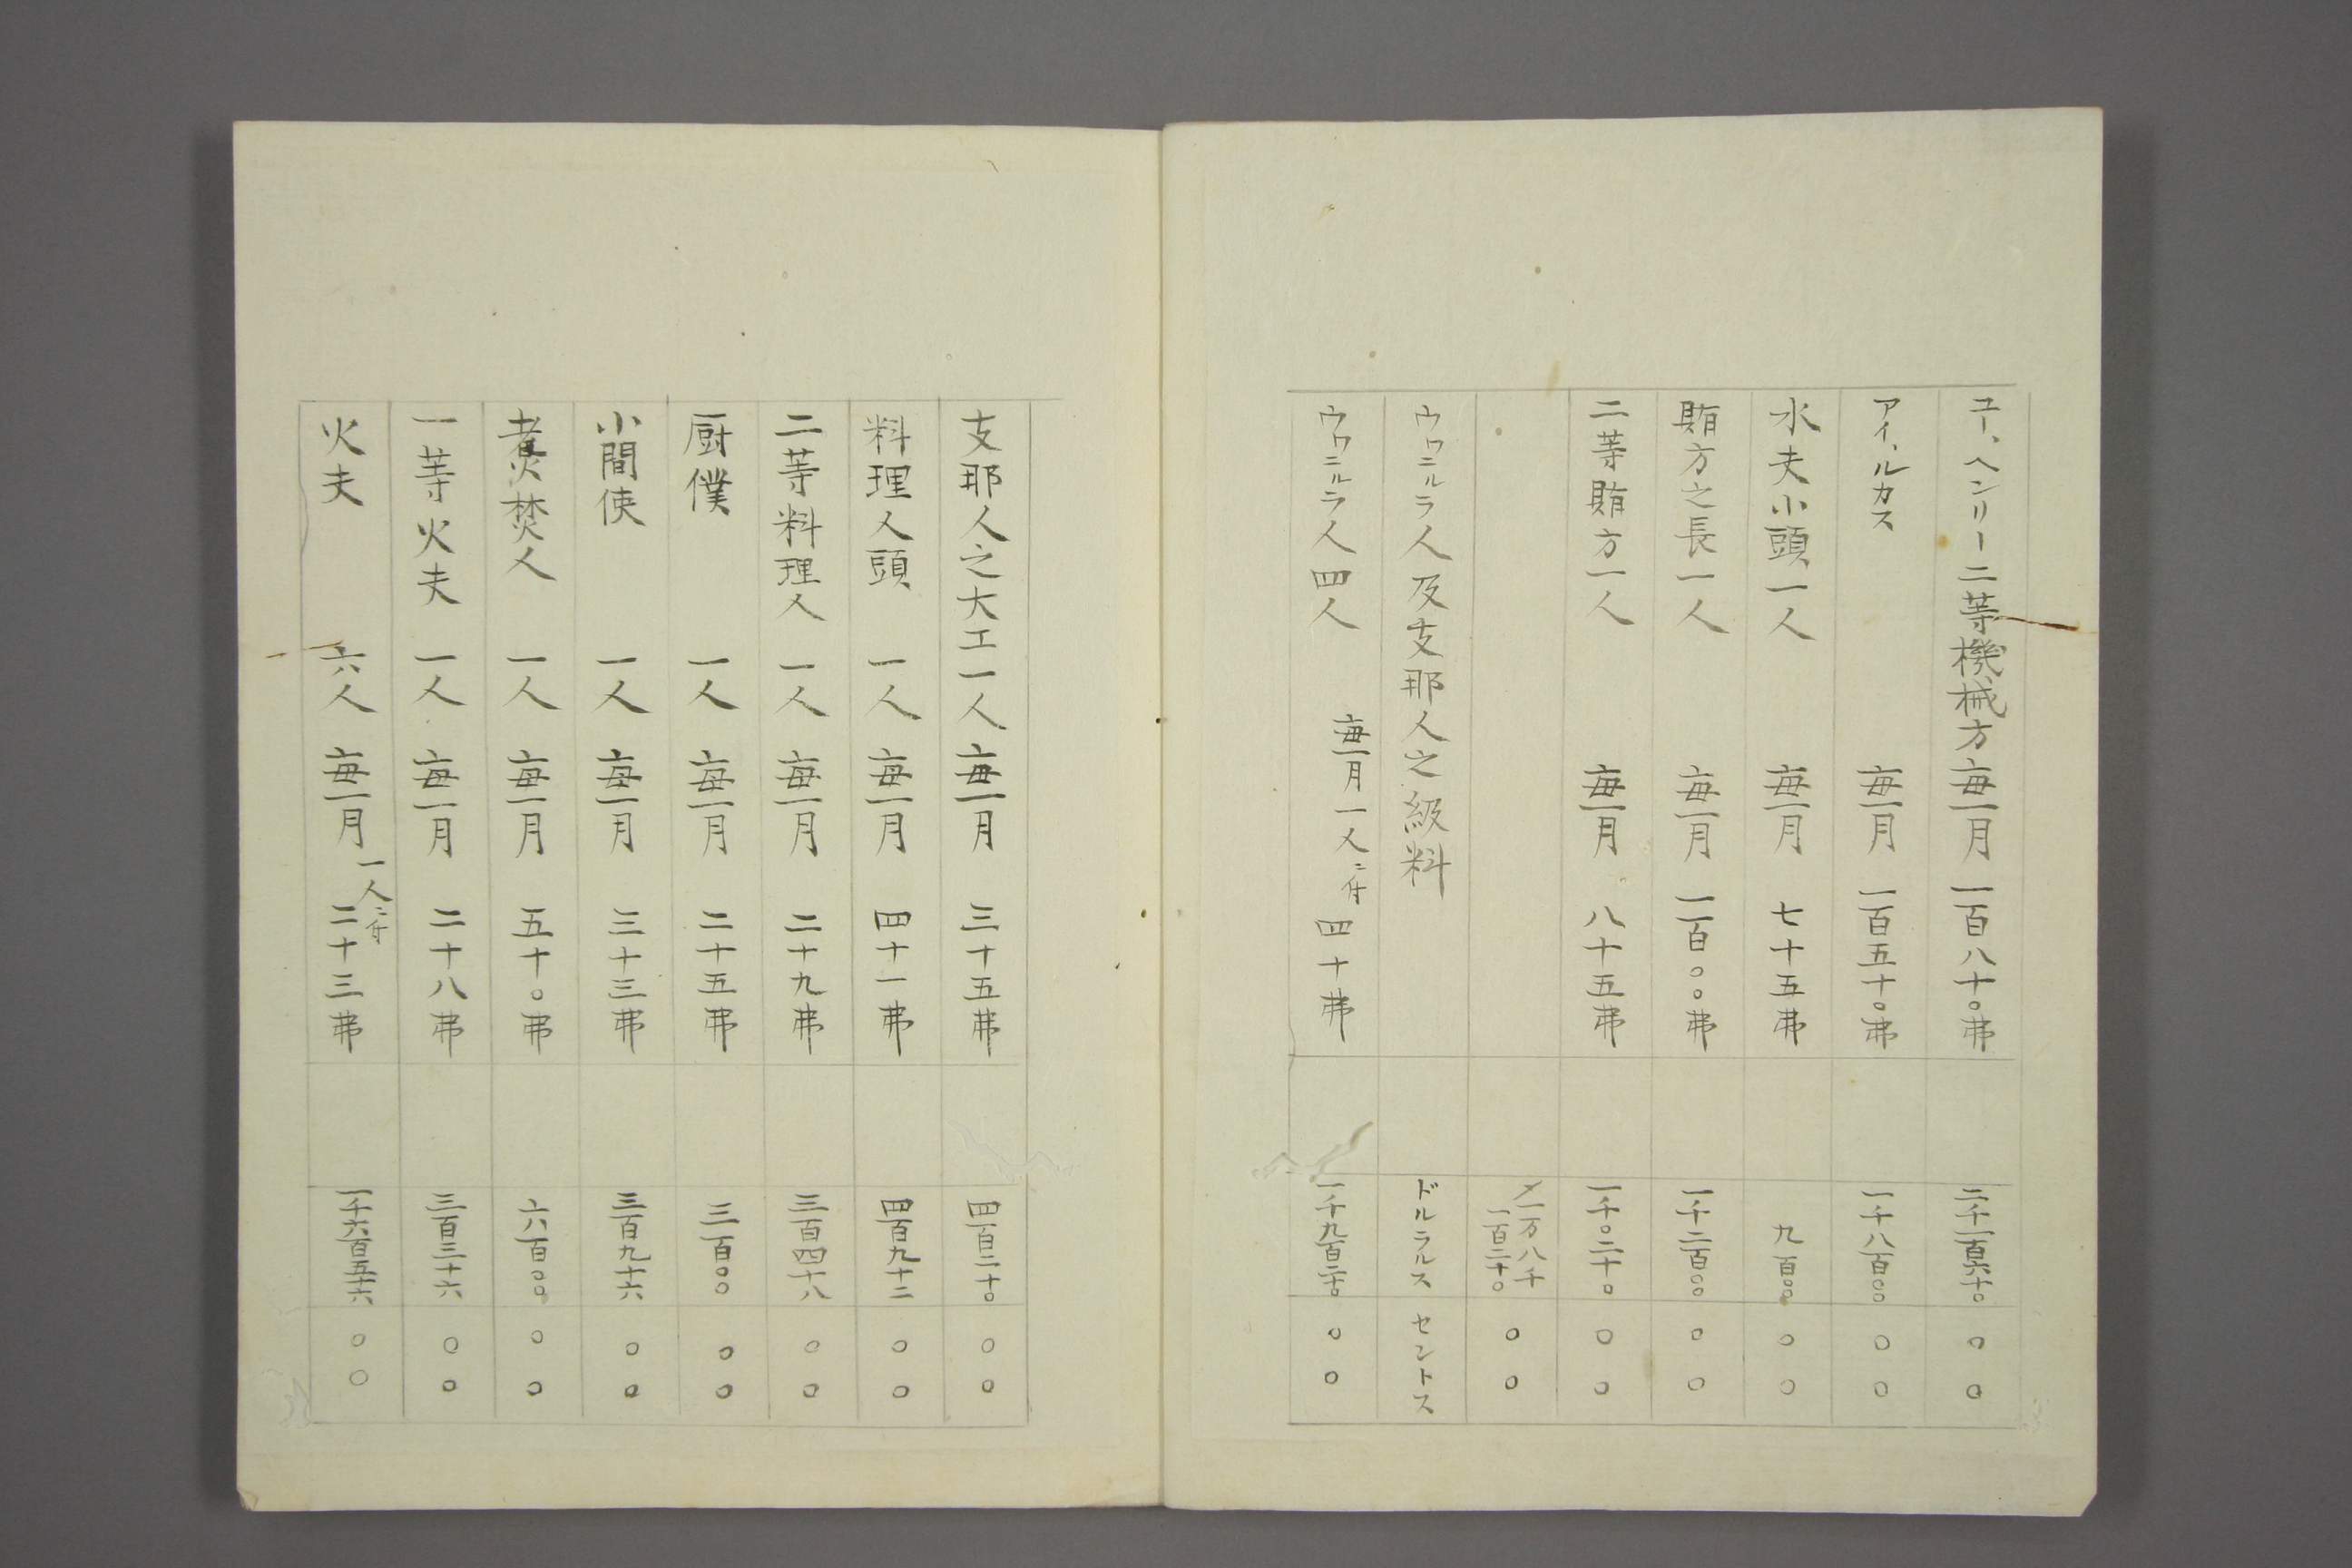 ユー、ヘンリー二等機械方毎一月 一百八十〇弗 二千一百六十〇 〇〇
アイ、ルカス 毎一月 一百五十〇弗 一千八百〇〇 〇〇
水夫小頭一人 毎一月 七十五弗 九百〇〇 〇〇
賄方之長一人 毎一月 一百〇〇弗 一千二百〇〇 〇〇
二等賄方一人 毎一月 八十五弗 一千〇二十〇 〇〇
〆一万八千一百二十〇 〇〇
ウワニルラ人及支那人之級料 ドルラルス セントス
ウワニルラ人四人 毎一月一人ニ付 四十弗 一千九百二十〇 〇〇
支那人之大工一人 毎一月 三十五弗 四百二十〇 〇〇
料理人頭 一人 毎一月 四十一弗 四百九十二 〇〇
二等料理人 一人 毎一月 二十九弗 三百四十八 〇〇
厨僕 一人 毎一月 二十五弗 三百〇〇 〇〇
小間使 一人 毎一月 三十三弗 三百九十六 〇〇
煮焚人 一人 毎一月 五十〇弗 六百〇〇 〇〇
一等火夫 一人 毎一月 二十八弗 三百三十六 〇〇
火夫 六人 毎一月一人ニ付 二十三弗 一千六百五十六 〇〇